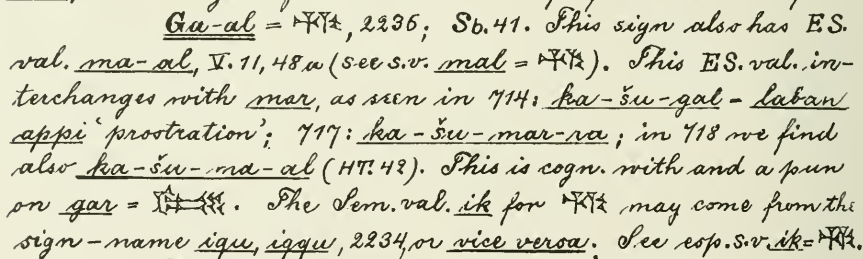 Ga-al = 𒅅, 2236; Sb. 41. This sign also has ES.
val. ma-al, V. 11, 48a (see s.v. mal = 𒅅). This ES. val. in-
terchanges with mar, as seen in 714: ka-šu-gal = laban
appi 'prostration'; 717: ka-šu-mar-ra; in 718 we find
also ka-šu-ma-al (HT. 42). This is cogn. with and a pun
on gar = . The Sem. val. ik for 𒅅 may come from the
sign-name iqu, iqqu, 2234, or vice versa. See esp. s.v. ik = 𒅅.